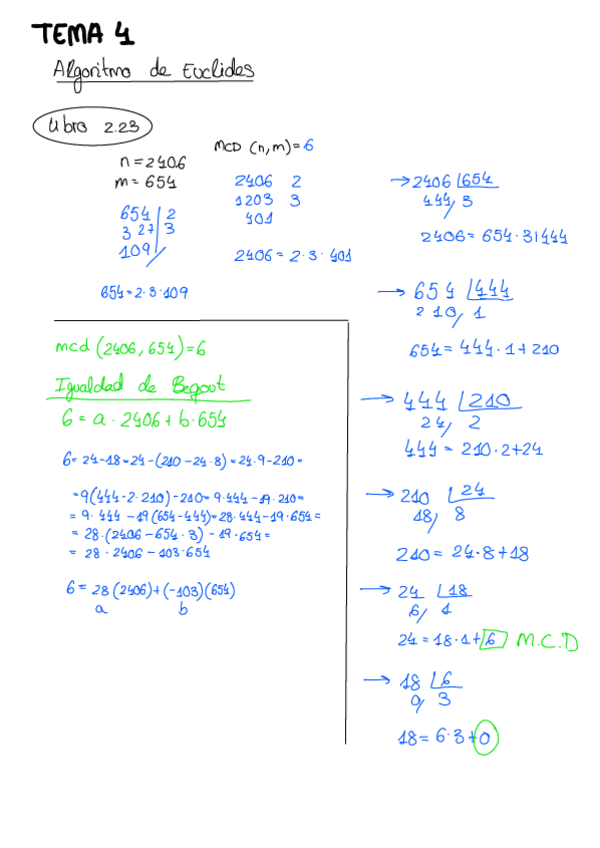 TEMA 4
Algoritmo de Euclides
Libro 2.23
n=2406
m=654
654 | 2
3 27 | 3
109
654=2·3·109
MCD (n,m)=6
2406 2
1203 3
401
2406=2·3·401
→ 2406 654
444 3
2406=654·3+444
→ 654 444
210 1
654=444·1+210
→ 444 210
24 2
444=210·2+24
→ 210 24
18 8
210=24·8+18
→ 24 18
6 1
24=18·1+6 M.C.D
→ 18 6
0 3
18=6·3+0
mcd (2406,654)=6
Igualdad de Begout
6=a·2406+b·654
6=24-18=24-(210-24·8)=24·9-210=
=9(444-2·210)-210=9·444-19·210=
=9·444-19(654-444)=28·444-19·654=
=28·(2406-654·3)-19·654=
=28·2406-103·654
6=28(2406)+(-103)(654)
a b